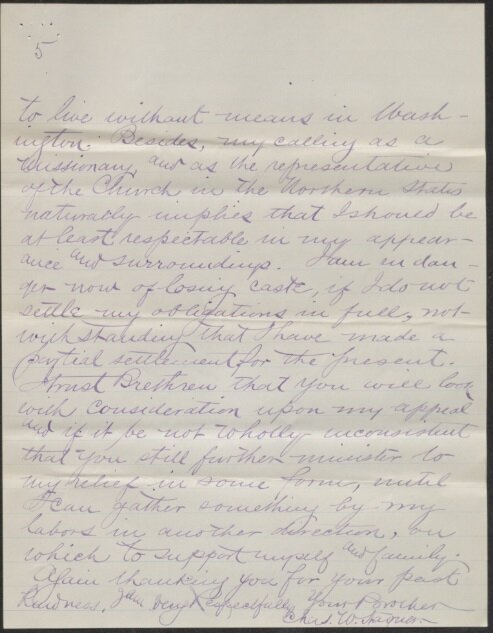 5
to live without means in Wash-
ington. Besides, my calling as a
Missionary, and as the representative
of the Church in the Northern States
naturally implies that I should be
at least respectable in my appear-
ance and surroundings. I am in dan-
ger now of losing caste, if I do not
settle my obligations in full, not-
withstanding that I have made a
partial settlement for the present.
I trust Brethren that you will look
with consideration upon my appeal
and if it be not wholly inconsistent
that you still further minister to
my relief in some form, until
I can gather something by my
labors in another direction, on
which to support myself and family.
Again thanking you for your past
kindness, I am very Respectfully Your Brother
Chas. W.